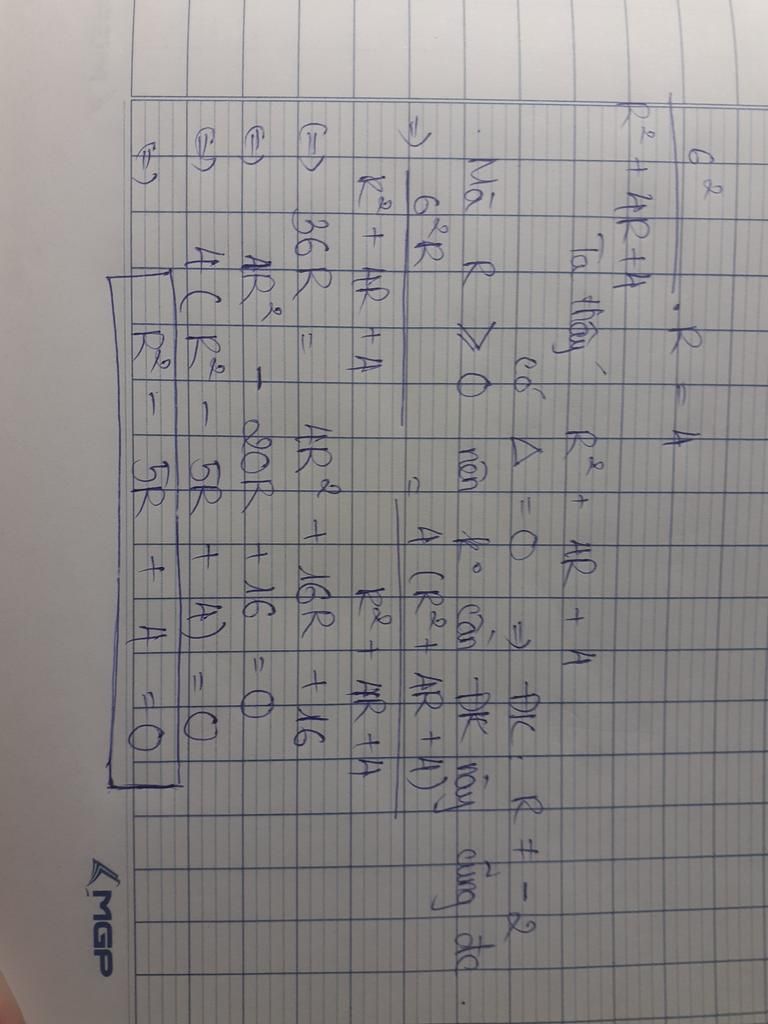 6²
――――――― . R = 4
R² + 4R + 4
Ta thấy R² + 4R + 4
có Δ = 0 => ĐK: R ≠ -2
. Mà R ≥ 0 nên k° cần ĐK này cũng đc.
=> 6²R = 4(R² + 4R + 4)
R² + 4R + 4 R² + 4R + 4
(=) 36R = 4R² + 16R + 16
(=) 4R² - 20R + 16 = 0
(=) 4(R² - 5R + 4) = 0
(=) R² - 5R + 4 = 0
MGP